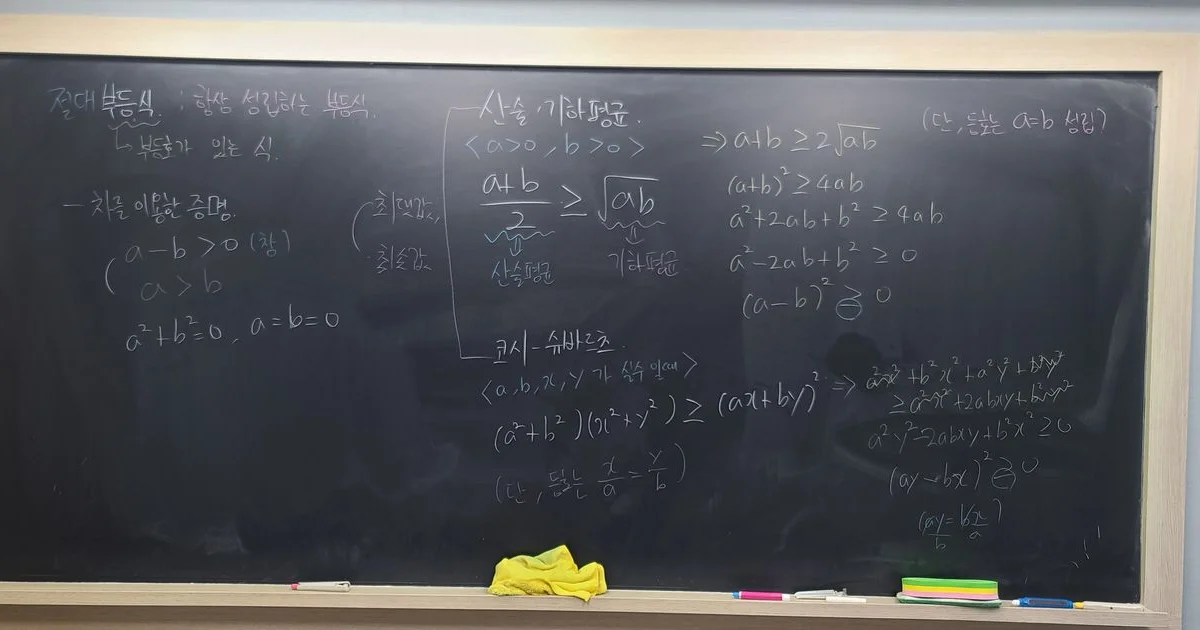 절대부등식 : 항상 성립하는 부등식.
부등호가 있는 식.
- 차를 이용한 증명.
a-b>0 (참)
a>b
a²+b²=0, a=b=0
최댓값,
최솟값
산술, 기하평균.
<a>0, b>0>
a+b/2 ≥ √ab
산술평균
기하평균
⇒ a+b ≥ 2√ab
(단, 등호는 a=b 성립)
(a+b)² ≥ 4ab
a²+2ab+b² ≥ 4ab
a²-2ab+b² ≥ 0
(a-b)² ≥ 0
코시-슈바르츠.
<a, b, x, y가 실수일때>
(a²+b²)(x²+y²) ≥ (ax+by)²
(단, 등호는 x/a = y/b)
⇒ a²x²+b²x²+a²y²+b²y²
≥ a²x²+2abxy+b²y²
a²y²-2abxy+b²x² ≥ 0
(ay-bx)² ≥ 0
(ay/b = bx/a)